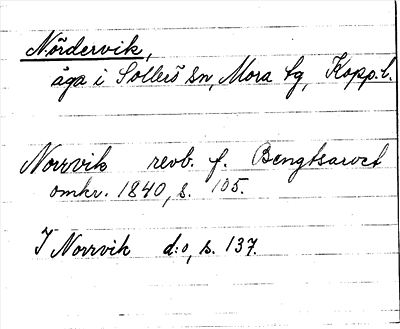 Nördervik,
äga i Sollerö sn, Mora tg, Kopp. l.
Norrvik revb. f. Bengtsarvet
omkr. 1840, s. 105.
I Norrvik d:o, s. 137.